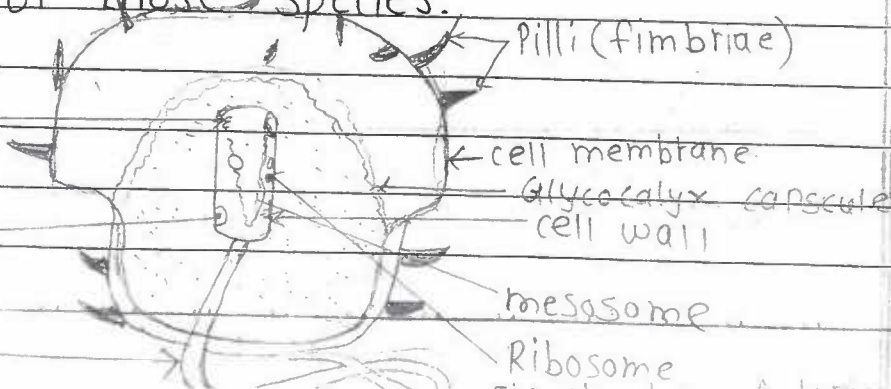 of most species.
Pilli (fimbriae)
cell membrane
Glycocalyx capscule
cell wall
mesosome
Ribosome